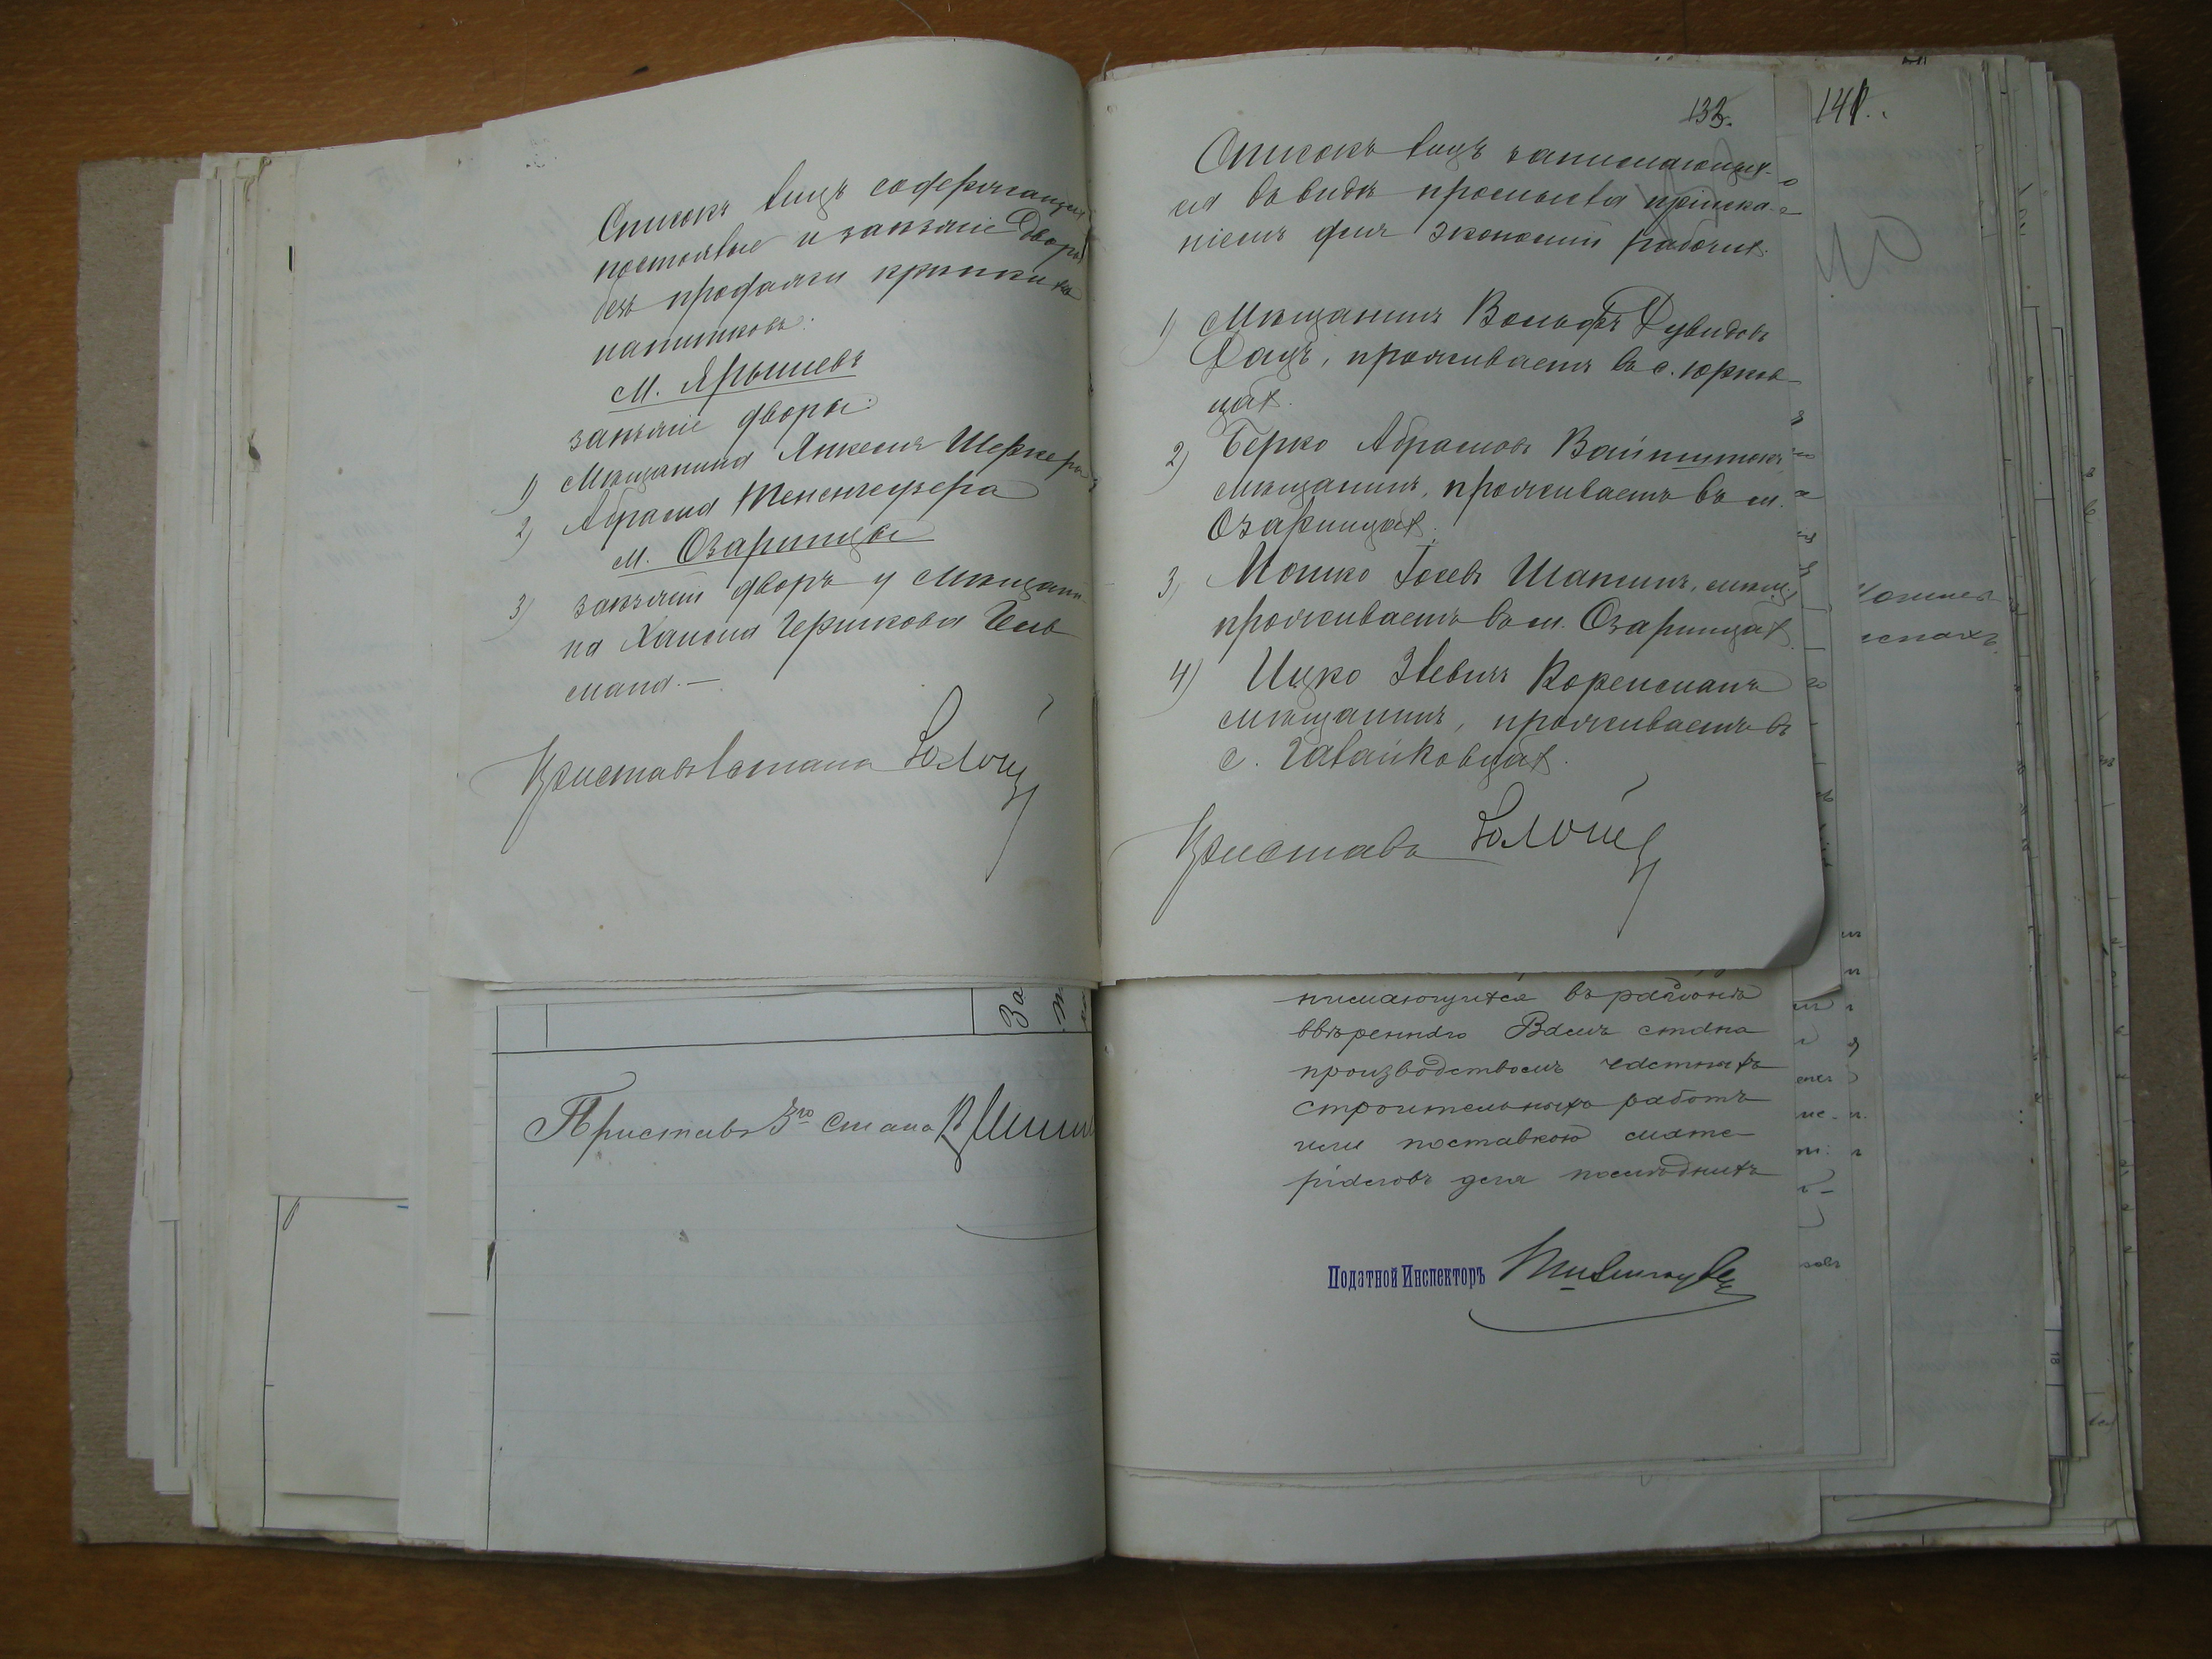 Списокъ лицъ содержащихъ
постоялые и заѣзжіе дворы
безъ продажи крѣпкихъ
напитковъ:
М. Ярышевъ
заѣзжіе дворы:
1) Мѣщанина Янкеля Шеркера
2) Абрама
М. Озаринцы
3) заѣзжій дворъ у мѣщани-
на Хаима Гершкова Гель
мана.—
Приставъ 1 стана
132.
Списокъ лицъ занимающих-
ся въ видѣ промысла пріиска-
ніемъ для экономій рабочихъ.
1) Мѣщанинъ Вольфъ Дувидовъ
Кацъ, проживаетъ въ с. Юрков-
цахъ.
2) Берко Абрамовъ
мѣщанинъ, проживаетъ въ м.
Озаринцахъ.
3) Мошко Іосевъ Шахинъ, мѣщ.,
проживаетъ въ м. Озаринцахъ.
4) Ицко Зельвиг Коренманъ
мѣщанинъ, проживаетъ въ
с. Галайковцахъ.
Приставъ
141.
За
Приставъ 3го Стана
нимающихся въ районѣ
ввѣреннаго Вамъ стана
производствомъ частныхъ
строительныхъ работъ
или поставкою мате-
ріаловъ для послѣднихъ
Податной Инспекторъ